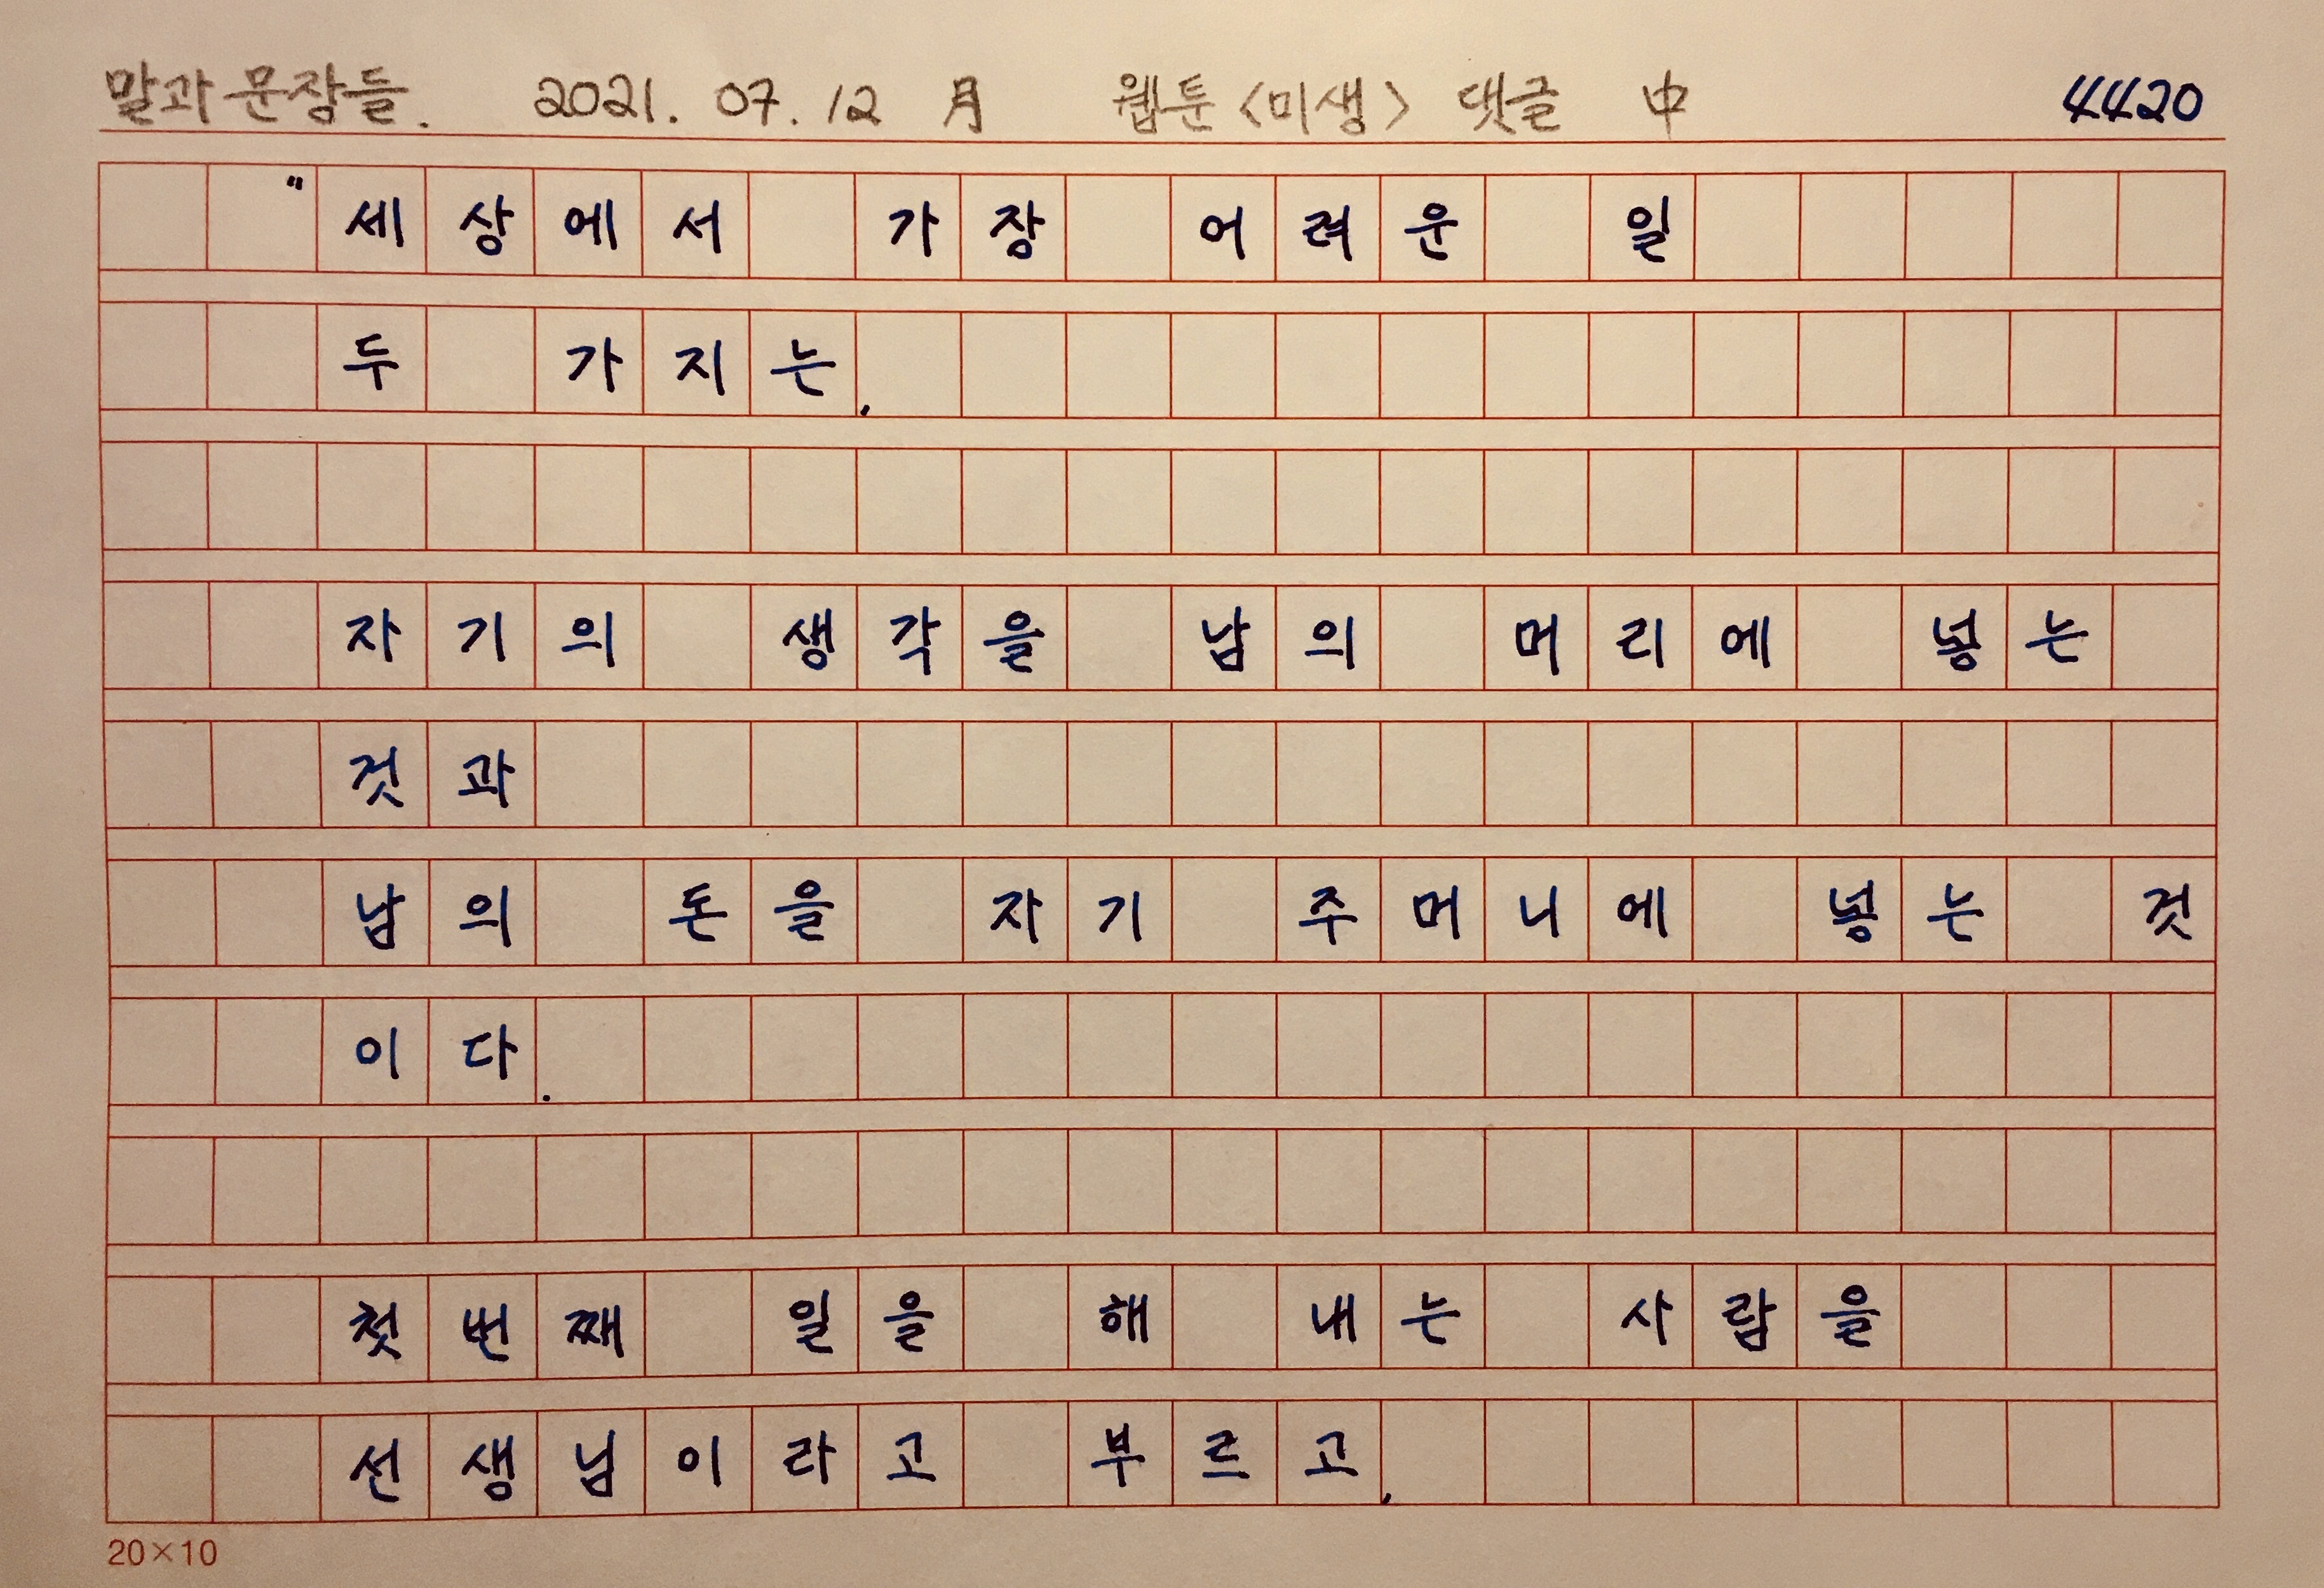 말과 문장들. 2021. 07. 12 月 웹툰 <미생> 댓글 中 4420
"세상에서 가장 어려운 일
두 가지는,
자기의 생각을 남의 머리에 넣는
것과
남의 돈을 자기 주머니에 넣는 것
이다.
첫번째 일을 해 내는 사람을
선생님이라고 부르고,
20×10